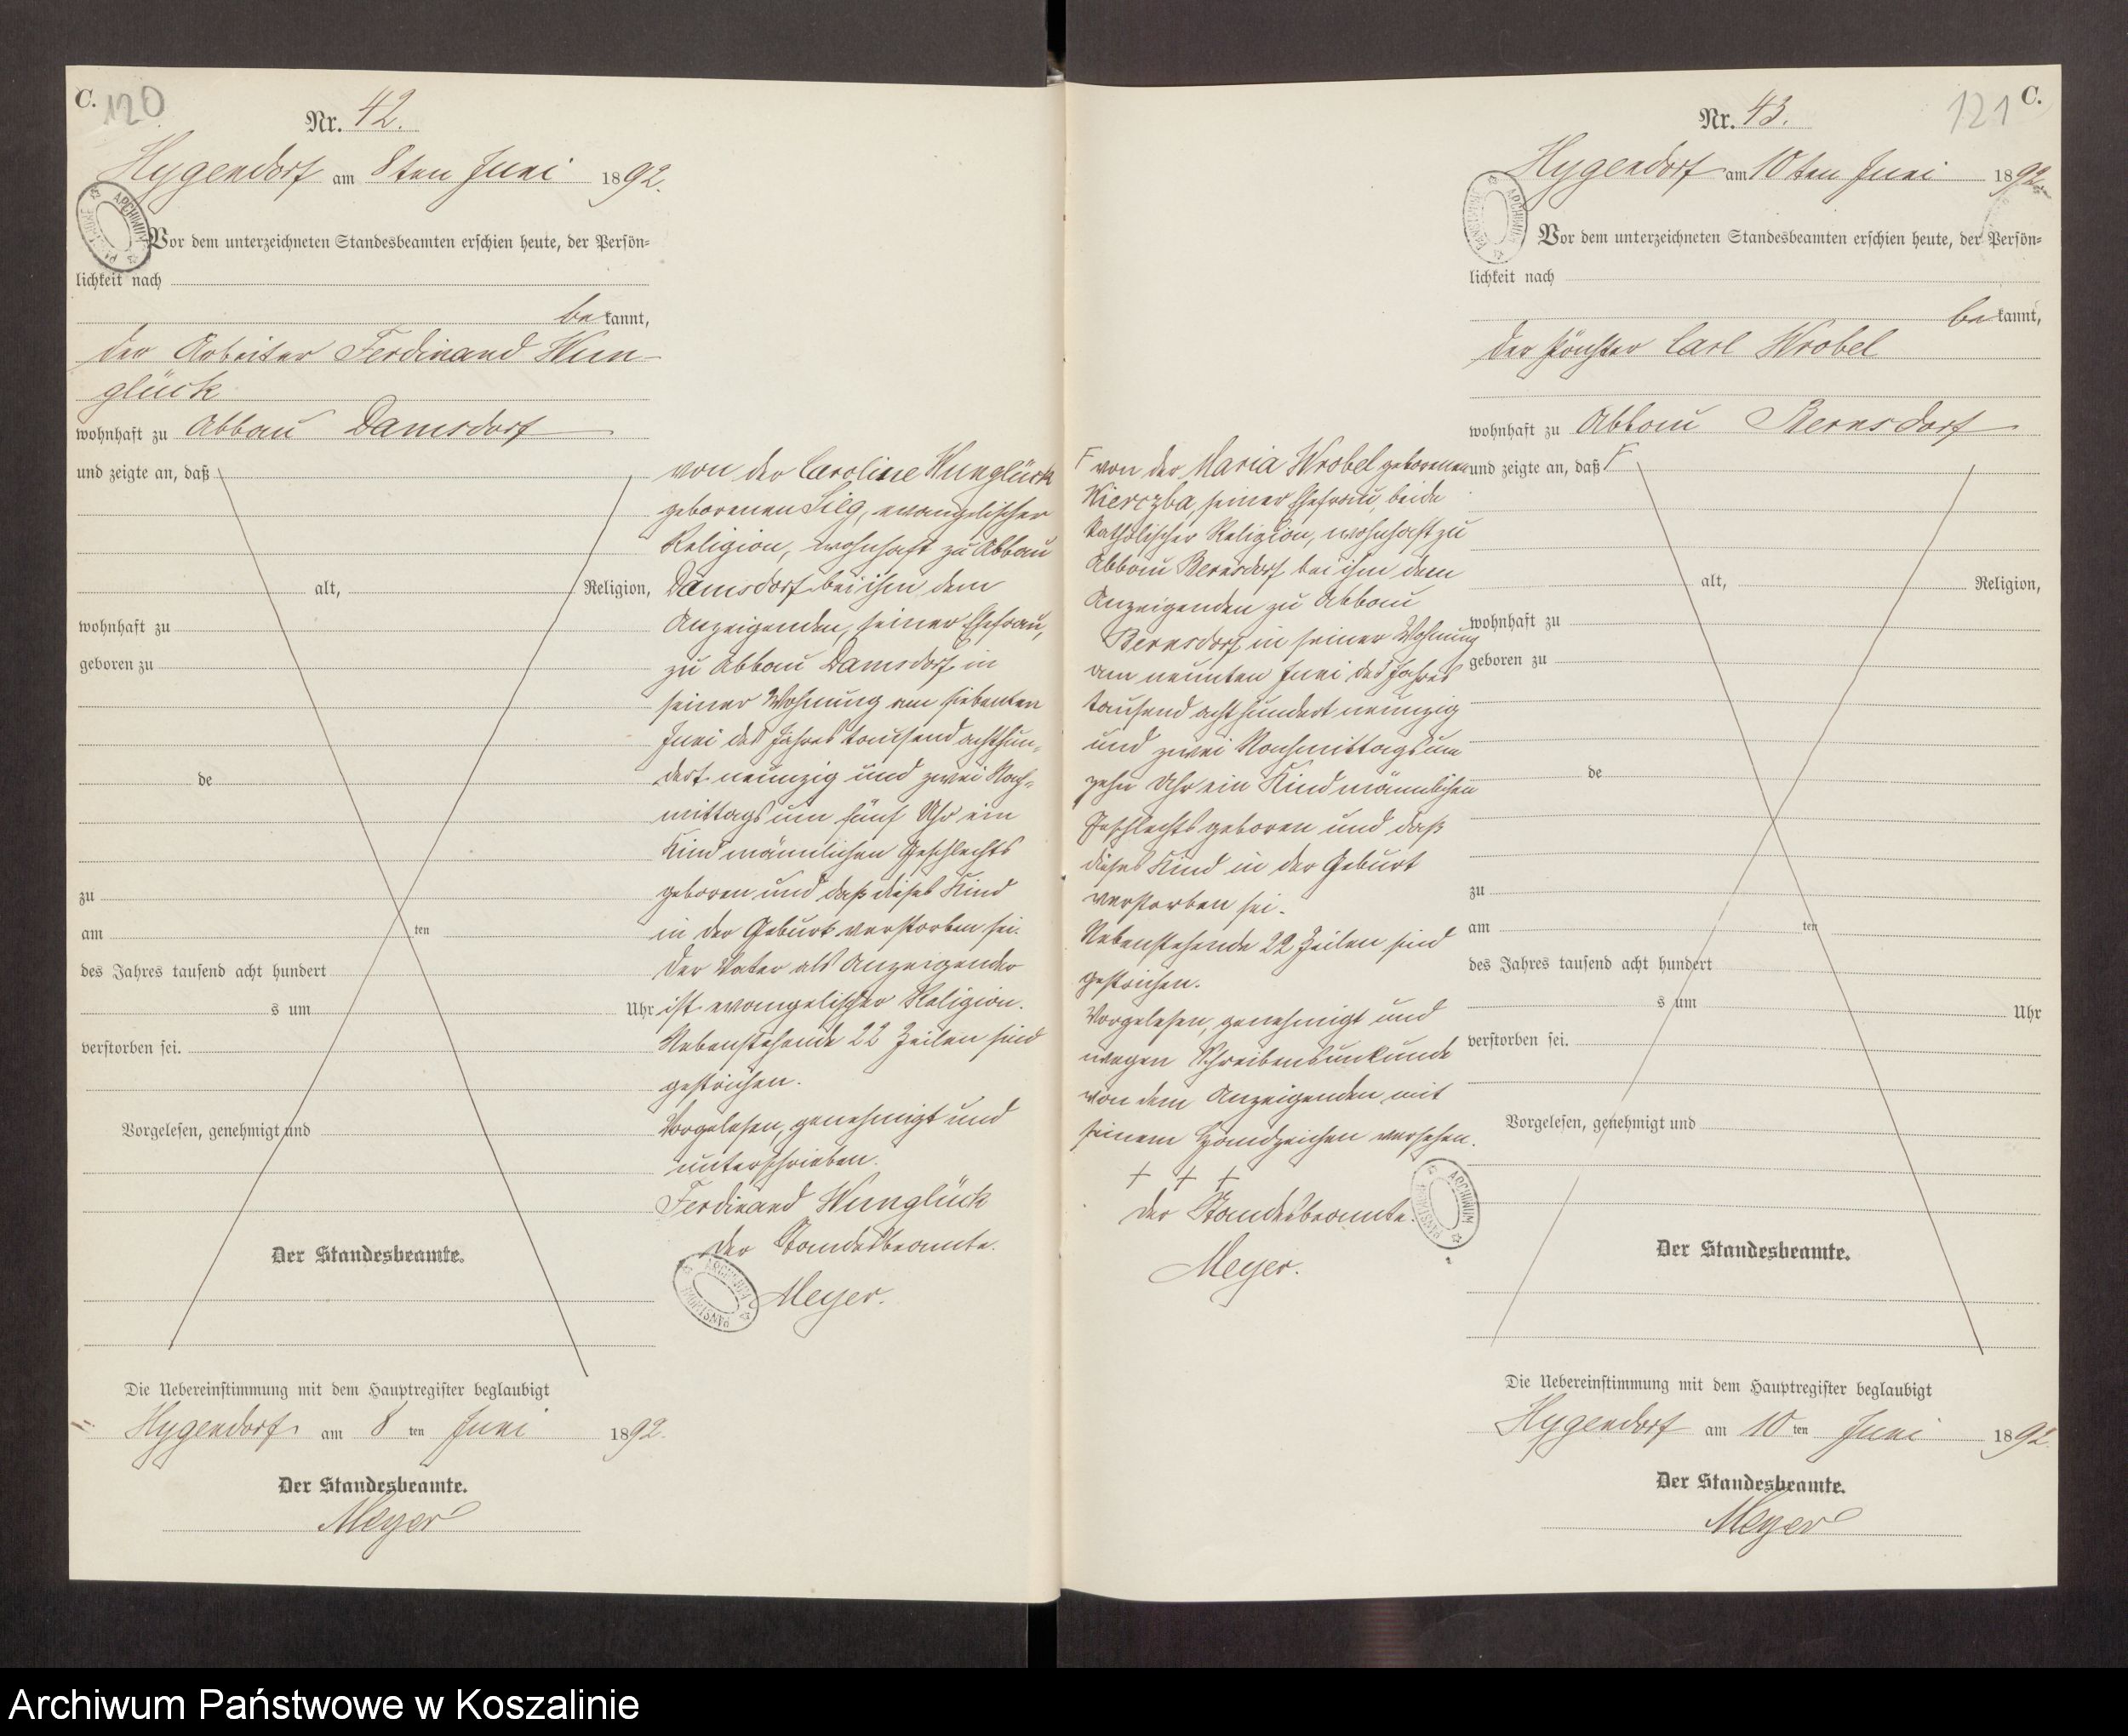 C. 120
Nr. 42.
Hygendorf am 8ten Juni 1892.
Vor dem unterzeichneten Standesbeamten erschien heute, der Persön=
lichkeit nach
be kannt,
der Arbeiter Ferdinand Wun-
glück
wohnhaft zu Abbau Damsdorf
und zeigte an, daß
alt, Religion,
wohnhaft zu
geboren zu
de
zu
am ten
des Jahres tausend acht hundert
s um Uhr
verstorben sei.
Vorgelesen, genehmigt und
Der Standesbeamte.
von der Caroline Wunglück
geborenen Silg, evangelischer
Religion, wohnhaft zu Abbau
Damsdorf bei ihm dem
Anzeigenden, seiner Ehefrau,
zu Abbau Damsdorf in
seiner Wohnung am siebenten
Juni des Jahres tausend achthun-
dert neunzig und zwei Nach-
mittags um fünf Uhr ein
Kind männlichen Geschlechts
geboren und daß dieses Kind
in der Geburt verstorben sei.
Der Vater als Anzeigender
ist evangelischer Religion.
Nebenstehende 22 Zeilen sind
gestrichen.
Vorgelesen, genehmigt und
unterschrieben.
Ferdinand Wunglück
Der Standesbeamte.
Meyer.
Die Uebereinstimmung mit dem Hauptregister beglaubigt
Hygendorf am 8 ten Juni 1892.
Der Standesbeamte.
Meyer
121 C.
Nr. 43.
Hygendorf am 10ten Juni 1892
Vor dem unterzeichneten Standesbeamten erschien heute, der Persön=
lichkeit nach
be kannt,
der Carl Wrobel
wohnhaft zu Abbau Bernsdorf
und zeigte an, daß F
alt, Religion,
wohnhaft zu
geboren zu
de
zu
am ten
des Jahres tausend acht hundert
s um Uhr
verstorben sei.
Vorgelesen, genehmigt und
Der Standesbeamte.
F von der Maria Wrobel geborenen
Kierczba, seiner Ehefrau, beide
katholischer Religion, wohnhaft zu
Abbau Bernsdorf bei ihm dem
Anzeigenden zu Abbau
Bernsdorf in seiner Wohnung
am neunten Juni des Jahres
tausend acht hundert neunzig
und zwei Nachmittags um
zehn Uhr ein Kind männlichen
Geschlechts geboren und daß
dieses Kind in der Geburt
verstorben sei.
Nebenstehende 22 Zeilen sind
gestrichen.
Vorgelesen, genehmigt und
wegen Schreibensunkunde
von dem Anzeigenden mit
seinem Handzeichen versehen.
+ + +
Der Standesbeamte.
Meyer.
Die Uebereinstimmung mit dem Hauptregister beglaubigt
Hygendorf am 10 ten Juni 1892
Der Standesbeamte.
Meyer
Archiwum Państwowe w Koszalinie